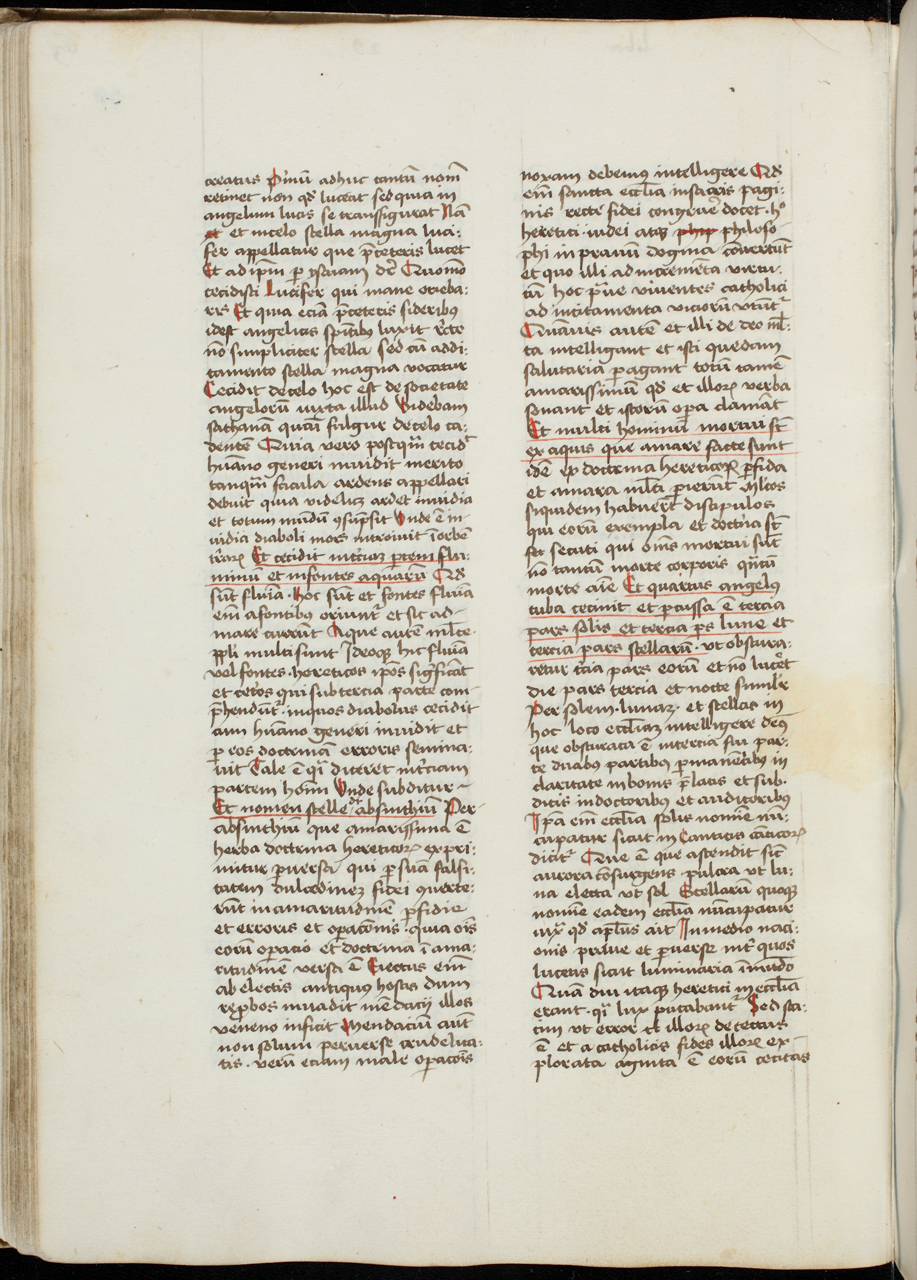 creatus Primũ adhuc tantũ nomẽ
retinet non qd̃ luceat sed quia in
angelum lucis se transfigurat Nã
et in celo stella magna luci⸗
fer appellatur que p̃ceteris lucet
Et ad ip̃m p ysaiam dr̃ Quomõ
cecidisti Lucifer qui mane orieba⸗
ris Et quia eciã p̃ceteris sideribus
idest angelicis sp̃itibus luxit rc̃te
nõ simpliciter stella sed cũ addi⸗
tamento stella magna vocatur
Cecidit de celo hoc est de societate
angelorũ iuxta illud Videbam
sathanam quasi fulgur de celo ca⸗
dentẽ Quia vero postqm̃ cecidit
hũano generi inuidit merito
tanqm̃ facula ardens appellari
debuit quia videlicꝫ ardet inuidia
et totum mũdũ ꝯsup̃sit Vnde ẽ in⸗
uidia diaboli mors introiuit ĩ orbẽ
t̃raꝝ Et cecidit in t̃ciaꝫ p̃tem flu⸗
minũ et in fontes aquarũ Qd̃
sũt fluĩa · hoc sũt et fontes fluĩa
eim̃ a fontibus oriunt᷑ et sic ad
mare currũt Aque autẽ ml̃te ·
ppl̃i multi sunt Ideoqꝫ hic fluĩa
vel fontes · hereticos ip̃os sig̃ficãt
et cet̃os qui sub tercia parte com⸗
p̃hendũt᷑ · in quos diabolus cecidit
cum hũano generi inuidit et
p eos doctrinam erroris semina⸗
uit Tale ẽ q̃i diceret in t̃ciam
partem hom̃ Vnde subditur ⸗
Et nomen stelle · absinthiũ Per
absinthiũ que amarissima ẽ
herba doctrina hereticoꝝ expri⸗
mitur puersa qui p suã falsi⸗
tatem dulcedineꝫ fidei ꝯuerte⸗
rũt in amaritudinẽ pfidie
et erroris et opacõnis · quia oĩs
eorũ opacio et doctrina ĩ ama⸗
ritudinẽ versa ẽ Eiectus eim̃
ab electis antiquus hostis dum
reprobos inuadit mẽdacij illos
veneno inficit Mendaciũ aut̃
non solum peruerse crudelita⸗
tis · verũ eciam male opacõis
noxam debemus intelligere Qd̃
eim̃ sancta ecclĩa in sacris pagi⸗
nis recte fidei congrue docet · h°
heretici · iudei atqꝫ phip philoso⸗
phi in prauũ dogma cõuertũt
et quo illi ad incremẽta virtu⸗
tũ hoc praue viuentes catholici
ad incitamenta vicioꝝ vtũt᷑
Quãuis autẽ et illi de deo ml̃⸗
ta intelligant et isti quedam
salutaria pagant totũ tamẽ
amarissimũ qd̃ et illoꝝ verba
sonant et istorũ opa clamãt
Et multi hominũ mortui sũt
ex aquis que amare facte sunt
idẽ ex doctrina hereticoꝝ pfida
et amara ml̃ti pierũt Multos
siquidem habuerũt discipulos
qui eorũ exempla et doctrĩa sũt
secuti qui oẽs mortui sũt
nõ tantũ morte corporis q̃ntũ
morte aĩe Et quartus angelus
tuba cecinit et pcussa ẽ tercia
pars solis et tercia ps lune et
tercia pars stellarũ · vt obscura⸗
retur t̃cia pars eorũ et nõ lucẽt
die pars tercia et nocte similr̃
Per solem · lunaꝫ · et stellas in
hoc loco eccl̃iaꝫ intelligere deõ
que obscurata ẽ in tercia sui par⸗
te duabus partibus p̃manẽtibus in
claritate in bonis p̃latis et sub⸗
ditis in doctoribus et auditoribus
Ip̃a eim̃ ecclĩa solis nomine nũ⸗
cupatur sicut in Canticis cãticoꝝ
dicit᷑ Que ẽ que ascendit sic̃
aurora cõsurgens pulcra vt lu⸗
na electa vt sol Stellarũ quoqꝫ
nomine eadem ecclĩa nũcupatur
iux̃ qd̃ apl̃us ait In medio naci⸗
onis praue et puerse int̃ quos
lucetis sicut luminaria ĩ mũdo
Quã diu itaqꝫ heretici in ecclĩa
erant · q̃i lux putabant᷑ Sed sta⸗
tim vt error illoꝝ detectus
ẽ et a catholicis fides illoꝝ ex⸗
plorata agnita ẽ eorũ cecitas